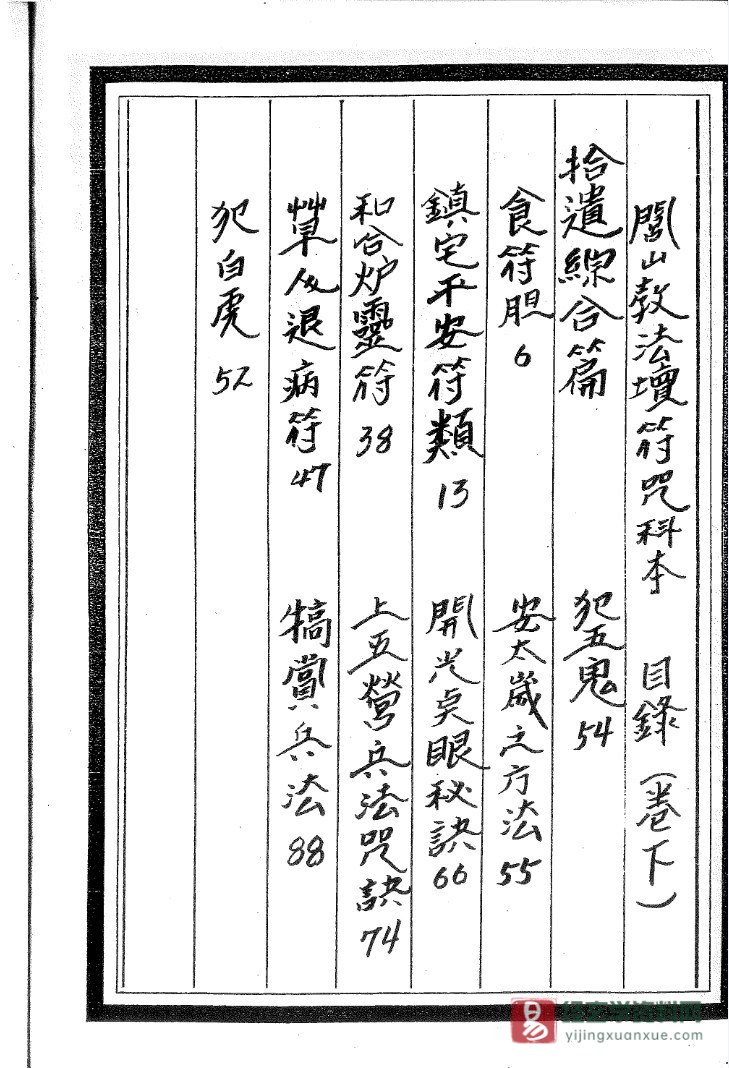 閭山教法壇符咒科本 目錄（卷下）
拾遺綜合篇
犯五鬼 54
食符胆 6
安太歲之方法 55
鎮宅平安符類 13
開光点眼秘訣 66
和合炉靈符 38
上五營兵法咒訣 74
草人退病符 47
犒賞兵法 88
犯白虎 52
易
易玄学资料网
yijingxuanxue.com